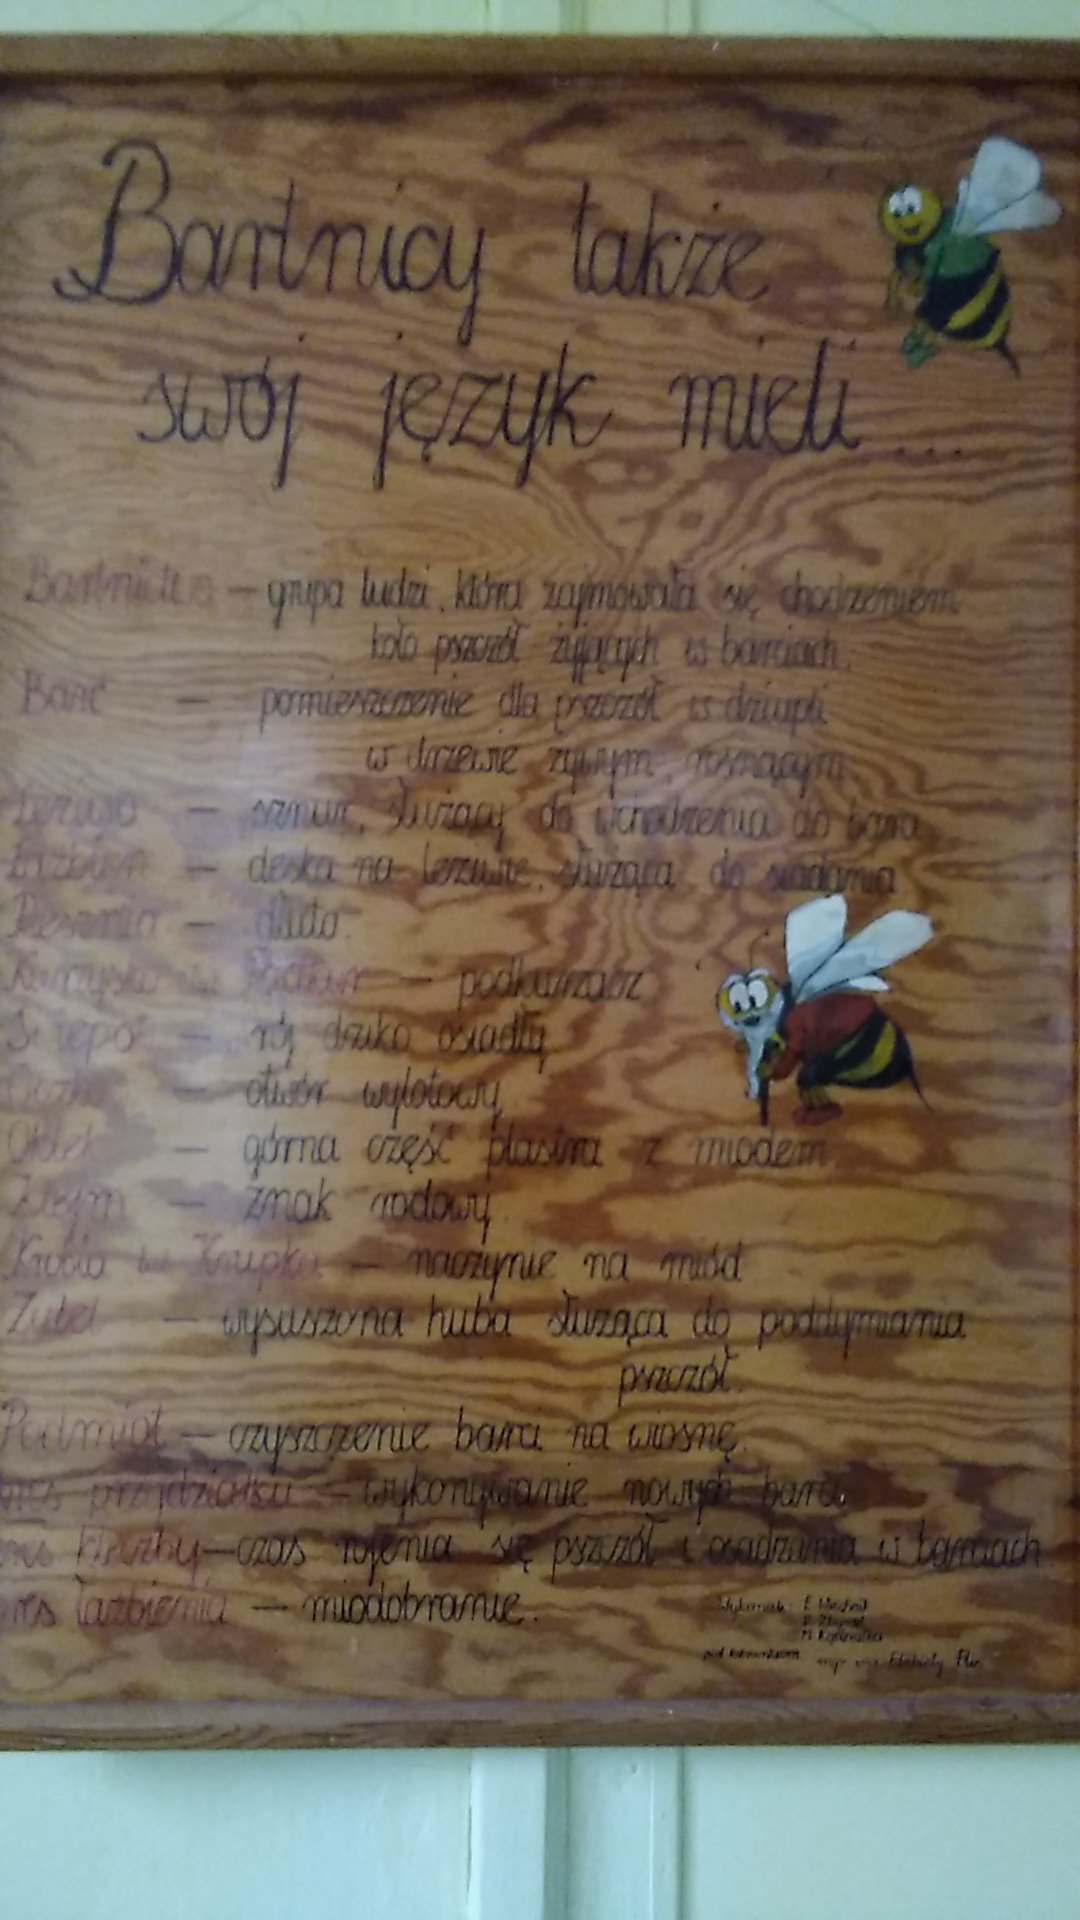 Bartnicy także
swój język mieli ...
Bartnictwo - grupa ludzi, która zajmowała się chodzeniem
koło pszczół żyjących w barciach.
Barć - pomieszczenie dla pszczół w dziupli
w drzewie żywym, rosnącym.
Leziwo - sznur, służący do wchodzenia do barci
Łaźbień - deska na leziwie, służąca do siadania
Piesznia - dłuto.
Kurzysko lub - podkurzacz
- rój dziko osiadły
- otwór wylotowy
- górna część plastra z miodem.
- znak rodowy.
Krobia lub Krupka - naczynie na miód
- wysuszona huba służąca do poddymiania
pszczół.
Podmiot - czyszczenie barci na wiosnę.
przydziałku - wykonywanie nowych barci
- czas rojenia się pszczół i osadzania w barciach
łaźbienia - miodobranie.
pod kierunkiem mgr inż. Elżbiety